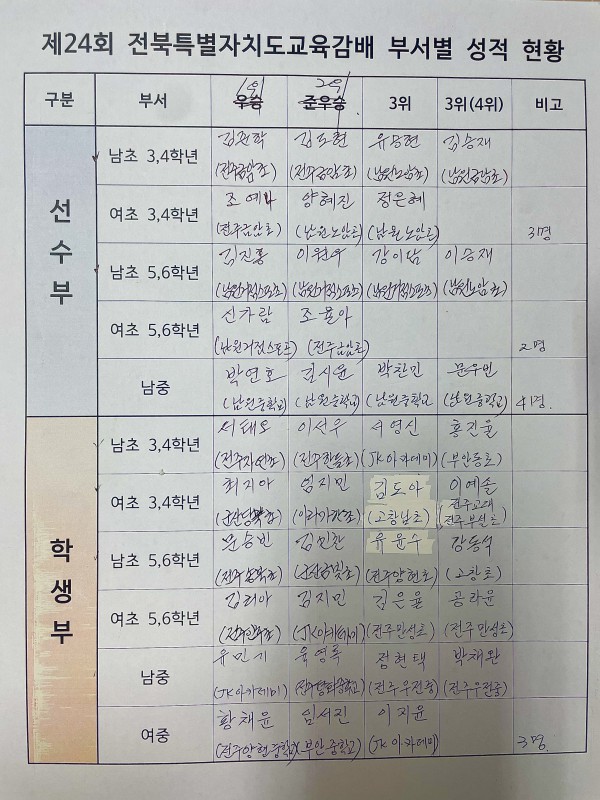 제24회 전북특별자치도교육감배 부서별 성적 현황
1위 2위
구분 부서 우승 준우승 3위 3위(4위) 비고
선수부
남초 3,4학년 김도현 유승현 김승재
(전주금암초) (전주금암초) (남원노암초) (남원금암초)
여초 3,4학년 조예나 양혜진 정은혜
(전주금암초) (남원노암초) (남원노암초) 3명
남초 5,6학년 김진홍 이원우 강이담 이승재
(남원거점스포츠) (남원거점스포츠) (남원거점스포츠) (남원노암초)
여초 5,6학년 신가람 조율아
(남원거점스포츠) (전주금암초) 2명
남중 박연호 김시윤 박찬민 문우빈
(남원중학교) (남원중학교) (남원중학교) (남원중학교) 4명.
학생부
남초 3,4학년 서태오 이선우 서영신 홍진율
(JK아카데미) (부안동초)
여초 3,4학년 최지아 엄지민 김도아 이예솔
(고창남초) (전주교대 전주부설초)
남초 5,6학년 문승빈 김민찬 유윤수 강동석
(전주양현초) (고창초)
여초 5,6학년 김리아 김지민 김은율 공라윤
(JK아카데미) (전주만성초) (전주만성초)
남중 유민기 육영록 정현택 박채완
(JK아카데미) (전주우전중) (전주우전중)
여중 황채윤 임서진 이지윤
(전주양현중학교) (부안중학교) (JK아카데미) 3명.